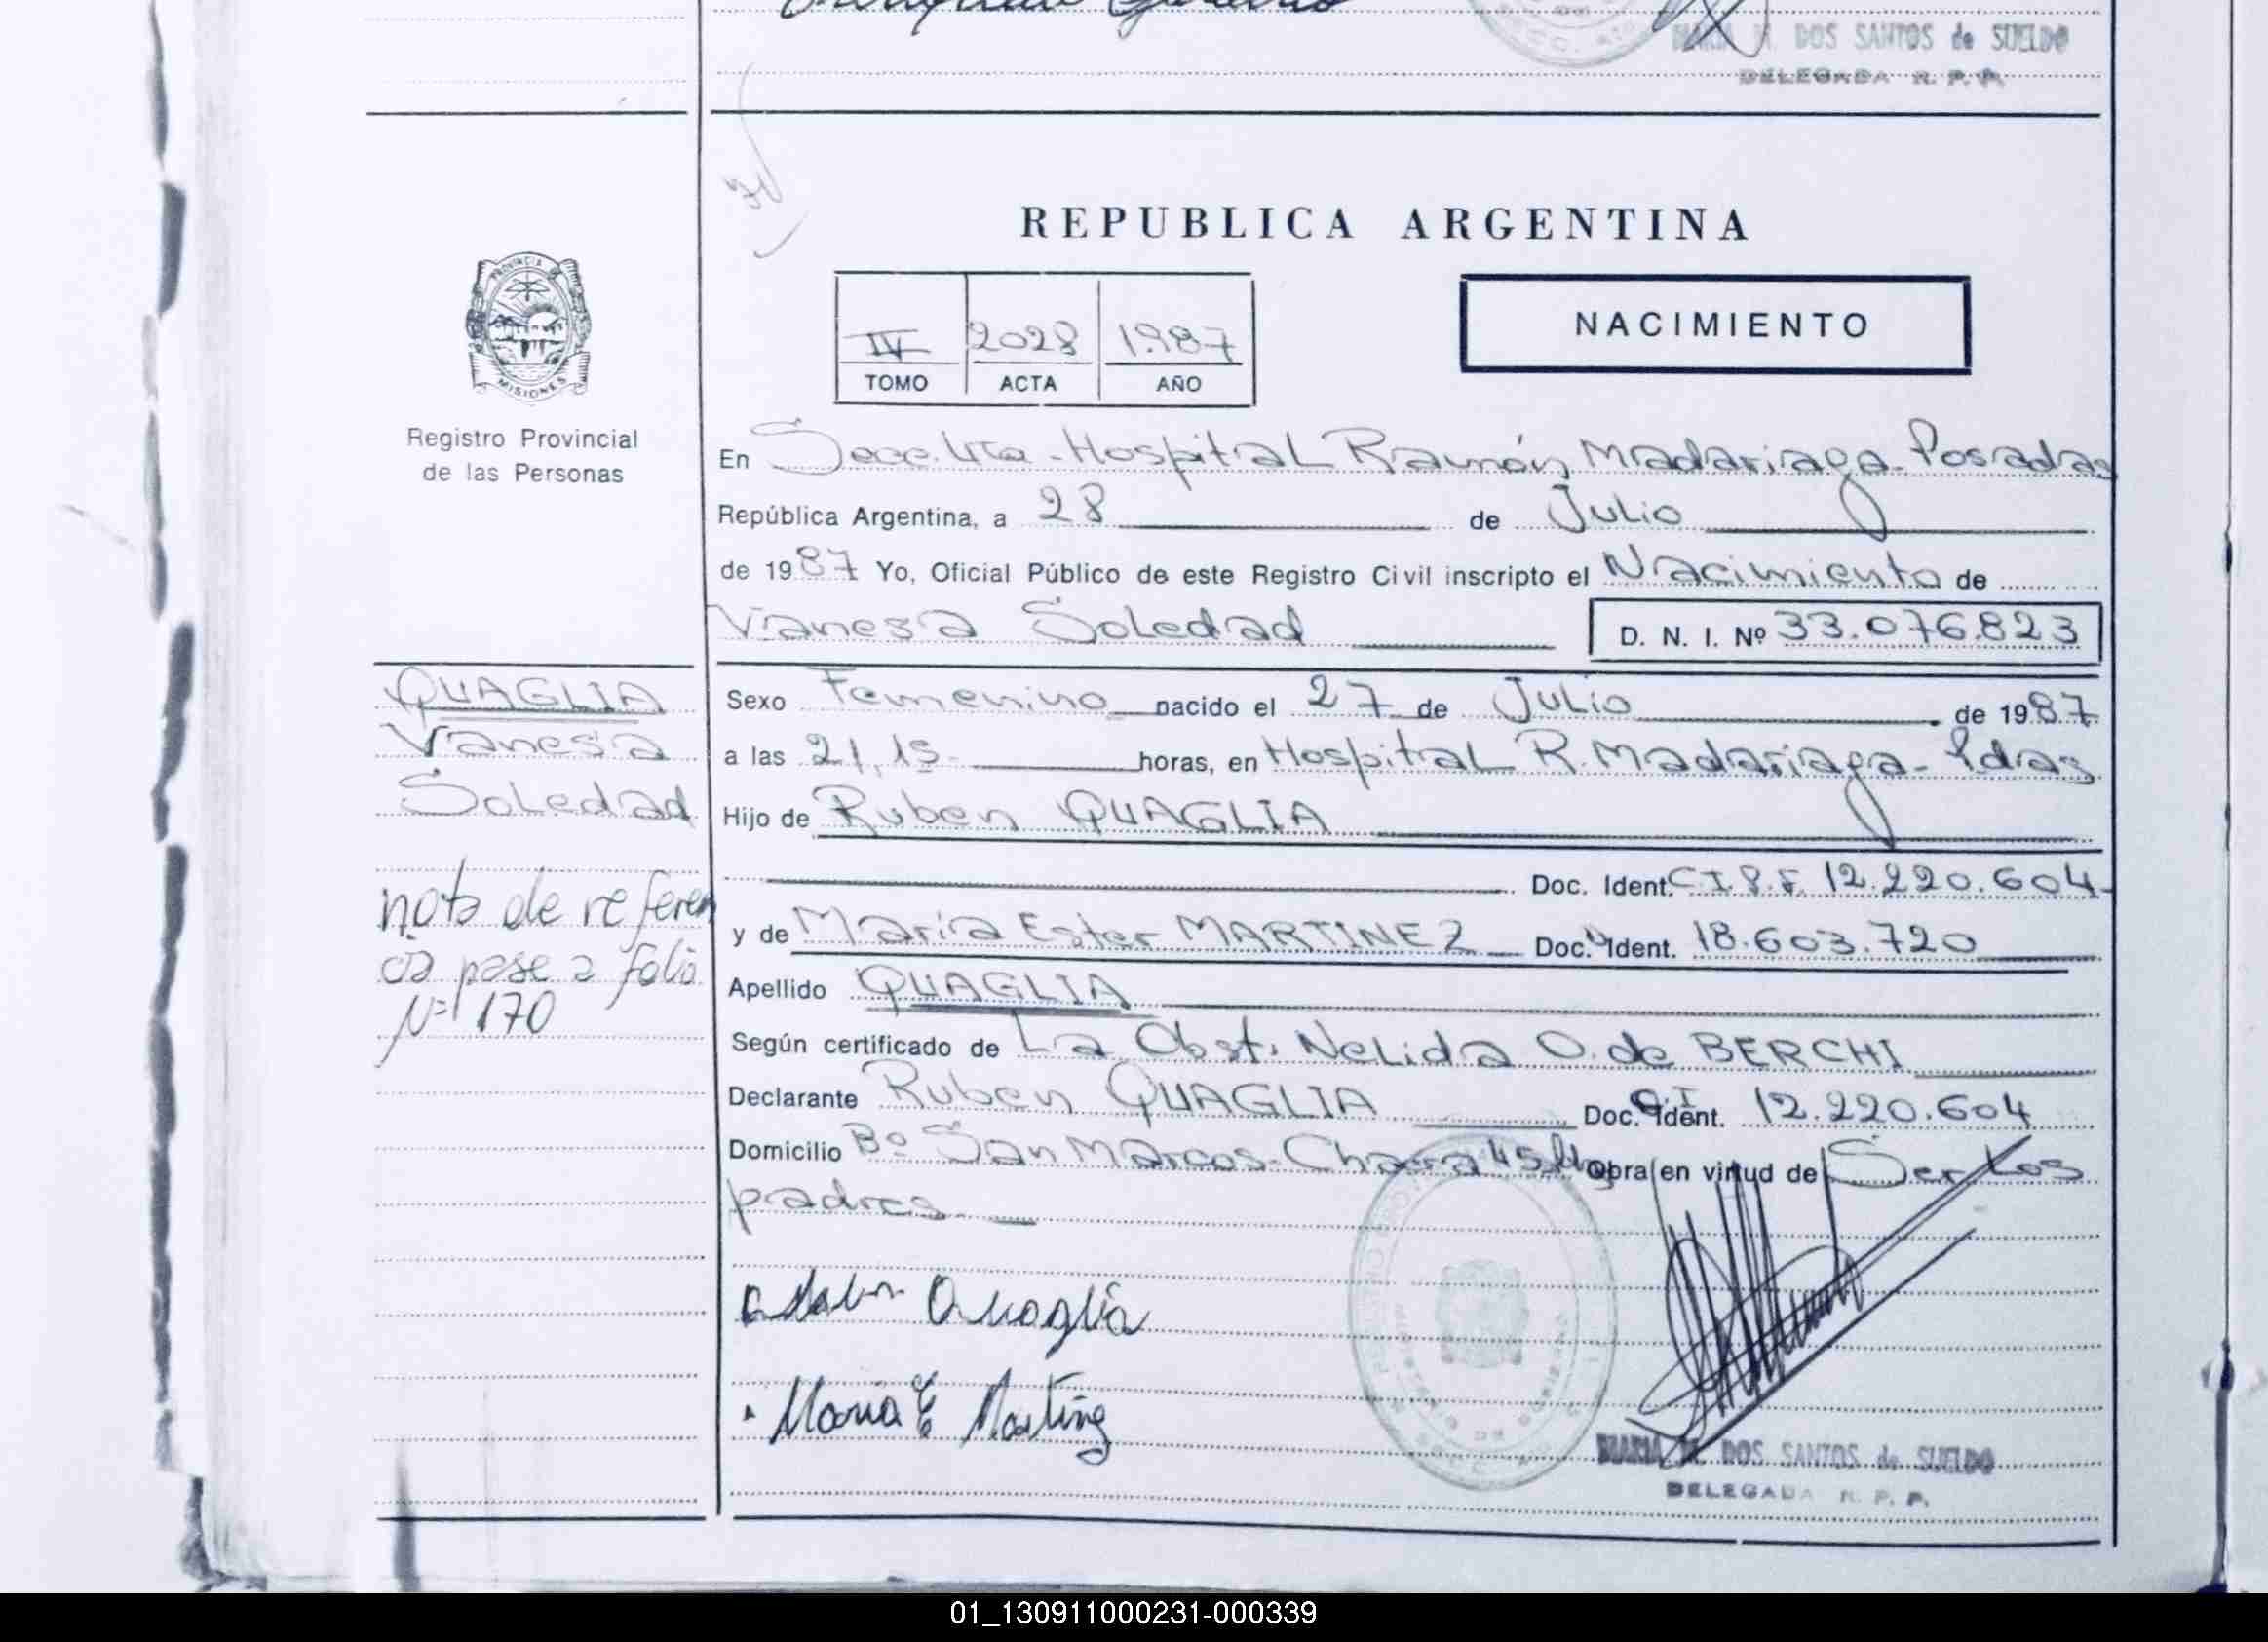 MARIA M. DOS SANTOS de SUELDO
DELEGADA R. P. P.
REPUBLICA ARGENTINA
PROVINCIA DE
MISIONES
Registro Provincial
de las Personas
NACIMIENTO
IV 2028 1987
TOMO ACTA AÑO
En Secc. 4ta - Hospital Ramón Madariaga - Posadas
República Argentina, a 28 de Julio
de 1987 Yo, Oficial Público de este Registro Civil inscripto el Nacimiento de
Vanesa Soledad D. N. I. Nº 33.076.823
QUAGLIA
Vanesa
Soledad
nota de referen
cia pase a folio
Nº 170
Sexo Femenino nacido el 27 de Julio de 1987
a las 21,15 horas, en Hospital R. Madariaga - Pdas
Hijo de Ruben QUAGLIA
Doc. Ident. C.I.P.F. 12.220.604
y de María Ester MARTINEZ Doc. Ident. 18.603.720
Apellido QUAGLIA
Según certificado de La Obst. Nelida O. de BERCHI
Declarante Ruben QUAGLIA Doc. Ident. C.I 12.220.604
Domicilio Bº San Marcos - Chacra 45 Obra en virtud de Ser los
padres
Quaglia
Maria E Martinez
MARIA M. DOS SANTOS de SUELDO
DELEGADA R. P. P.
01_130911000231-000339